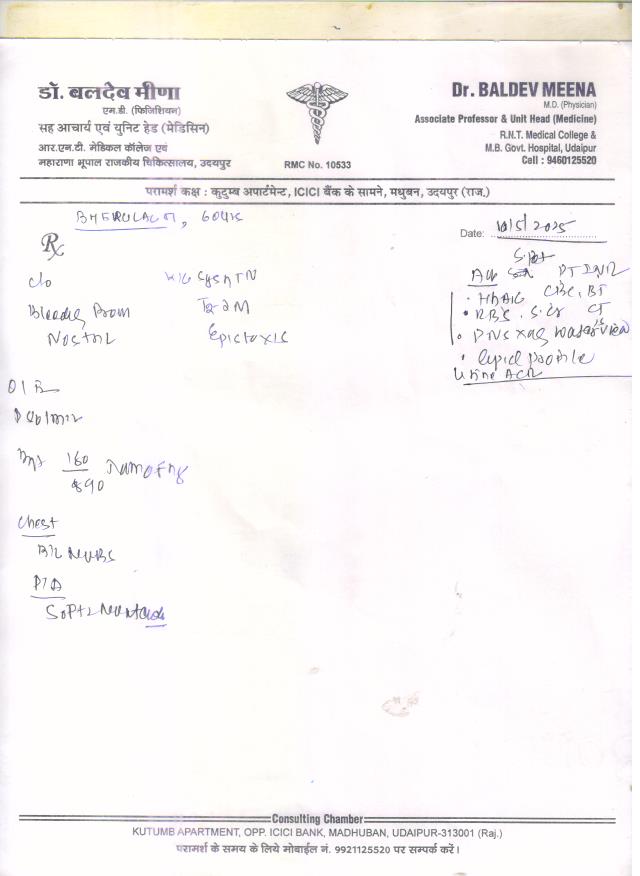 डॉ. बलदेव मीणा
एम.डी. (फिजिशियन)
सह आचार्य एवं यूनिट हेड (मेडिसिन)
आर.एन.टी. मेडिकल कॉलेज एवं
महाराणा भूपाल राजकीय चिकित्सालय, उदयपुर
RMC No. 10533
Dr. BALDEV MEENA
M.D. (Physician)
Associate Professor & Unit Head (Medicine)
R.N.T. Medical College &
M.B. Govt. Hospital, Udaipur
Cell : 9460125520
परामर्श कक्ष : कुटुम्ब अपार्टमेन्ट, ICICI बैंक के सामने, मधुबन, उदयपुर (राज.)
BHERULAL, 60
Date: 10/5/2025
Rx
c/o
Bleeding from
Nostril
T2DM
Epictoxis
PTINR
HbA1C CBC, BT
RBS, S.Cr CT
PNS Xray water's view
lipid profile
Urine ACR
O/E
160
90
Chest
P/A
Consulting Chamber
KUTUMB APARTMENT, OPP. ICICI BANK, MADHUBAN, UDAIPUR-313001 (Raj.)
परामर्श के समय के लिये मोबाईल नं. 9921125520 पर सम्पर्क करें।